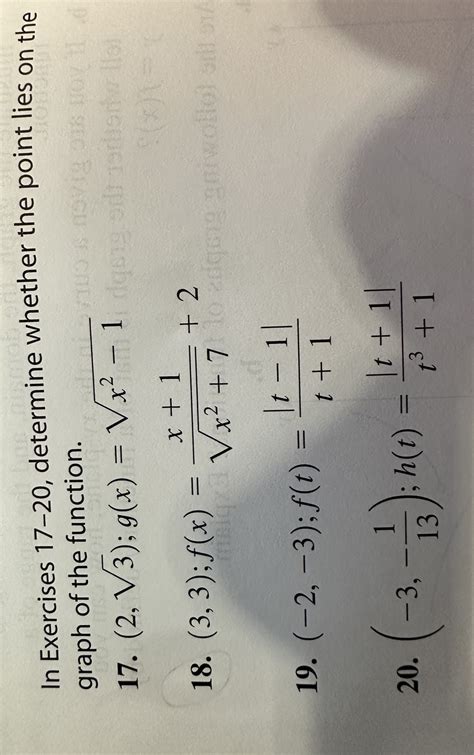 In Exercises 17–20, determine whether the point lies on the
graph of the function.
17. (2, √3); g(x) = √(x² − 1)
18. (3, 3); f(x) = (x + 1)/√(x² + 7) + 2
19. (−2, −3); f(t) = |t − 1|/(t + 1)
20. (−3, −1/13); h(t) = |t + 1|/(t³ + 1)